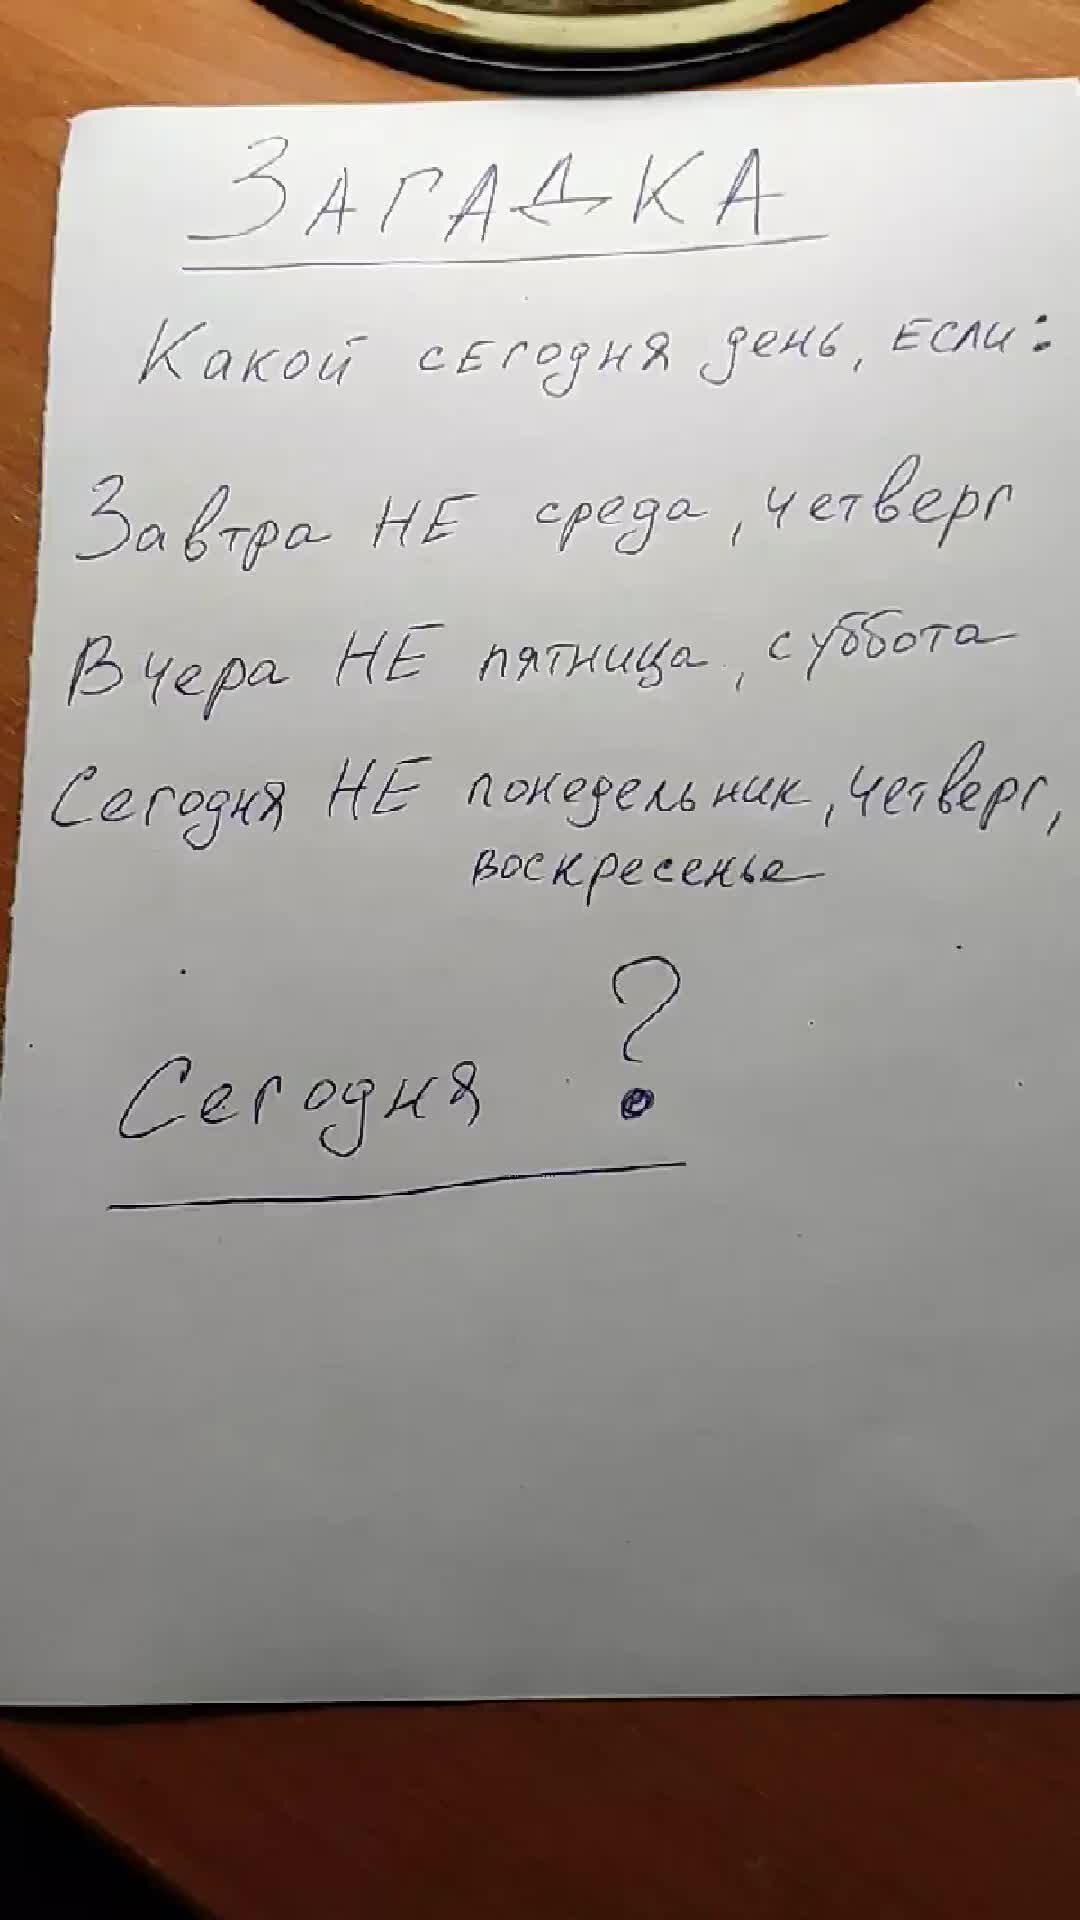 ЗАГАДКА
Какой сегодня день, если:
Завтра НЕ среда, четверг
Вчера НЕ пятница, суббота
Сегодня НЕ понедельник, четверг,
воскресенье
Сегодня ?